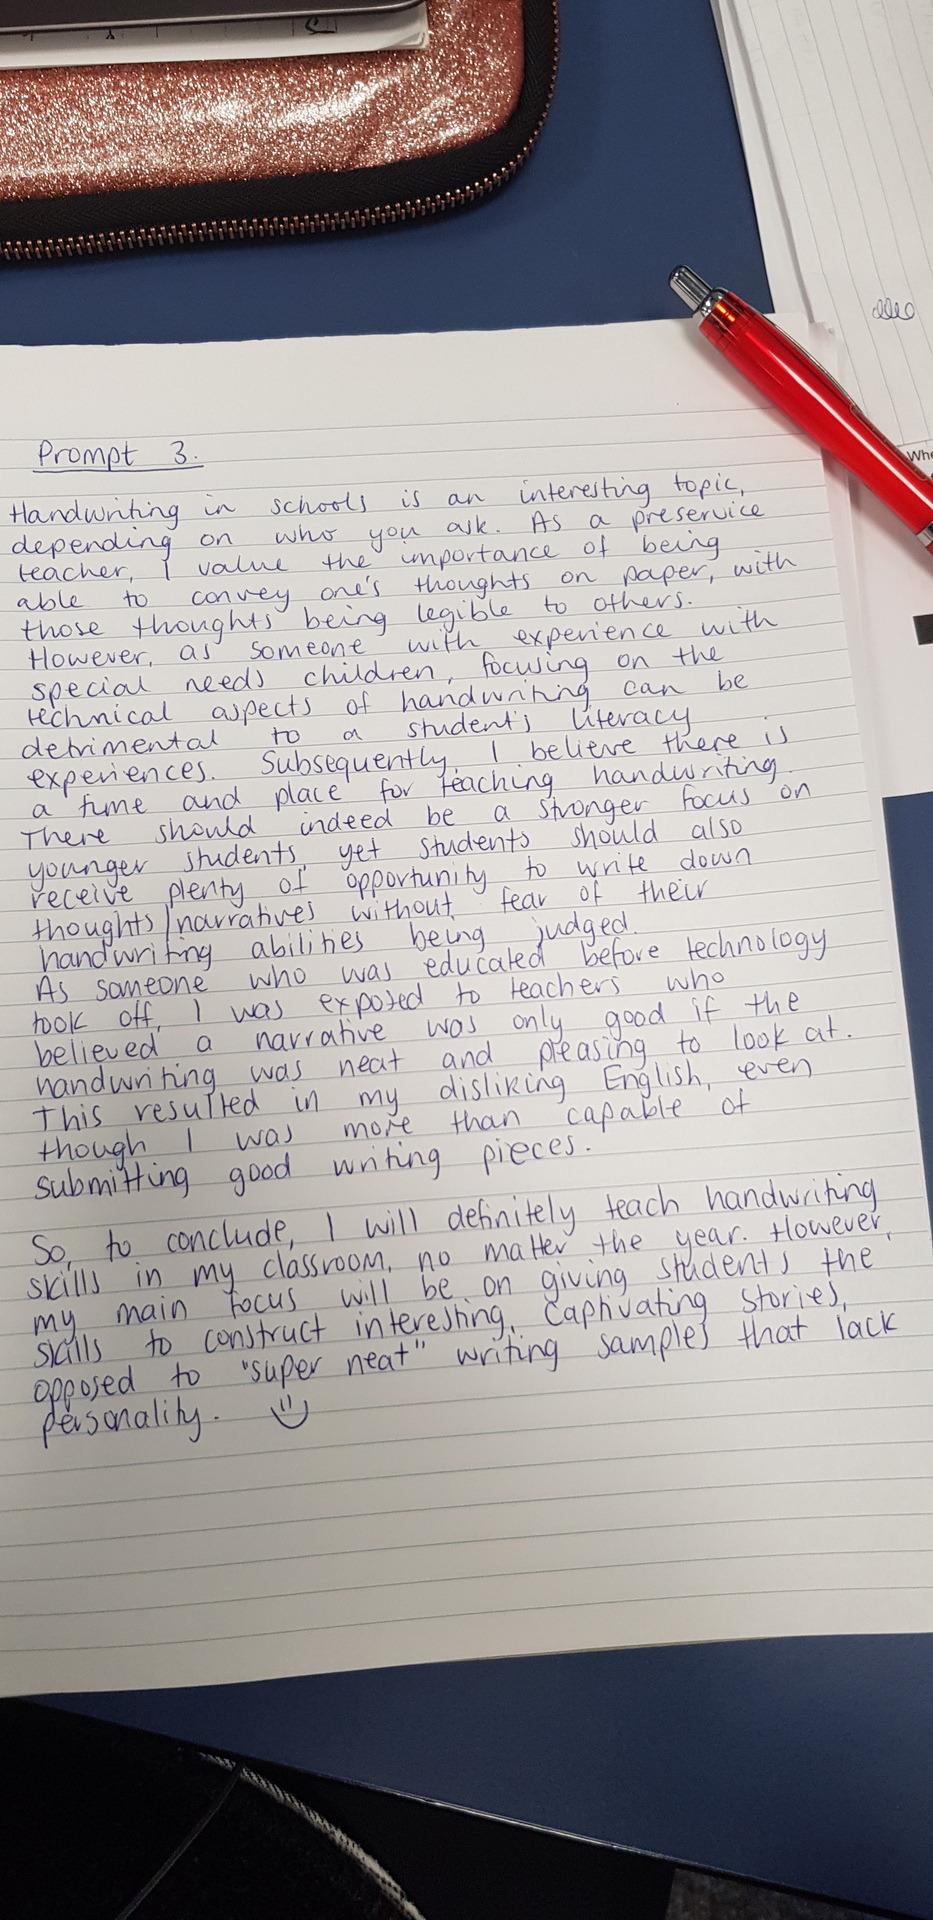 Prompt 3.
Handwriting in schools is an interesting topic,
depending on who you ask. As a preservice
teacher, I value the importance of being
able to convey one's thoughts on paper, with
those thoughts being legible to others.
However, as someone with experience with
special needs children, focusing on the
technical aspects of handwriting can be
detrimental to a student's literacy
experiences. Subsequently, I believe there is
a time and place for teaching handwriting.
There should indeed be a stronger focus on
younger students, yet students should also
receive plenty of opportunity to write down
thoughts/narratives without fear of their
handwriting abilities being judged.
As someone who was educated before technology
took off, I was exposed to teachers who
believed a narrative was only good if the
handwriting was neat and pleasing to look at.
This resulted in my disliking English, even
though I was more than capable of
submitting good writing pieces.
So, to conclude, I will definitely teach handwriting
skills in my classroom, no matter the year. However,
my main focus will be on giving students the
skills to construct interesting, captivating stories,
opposed to "super neat" writing samples that lack
personality.
Whe